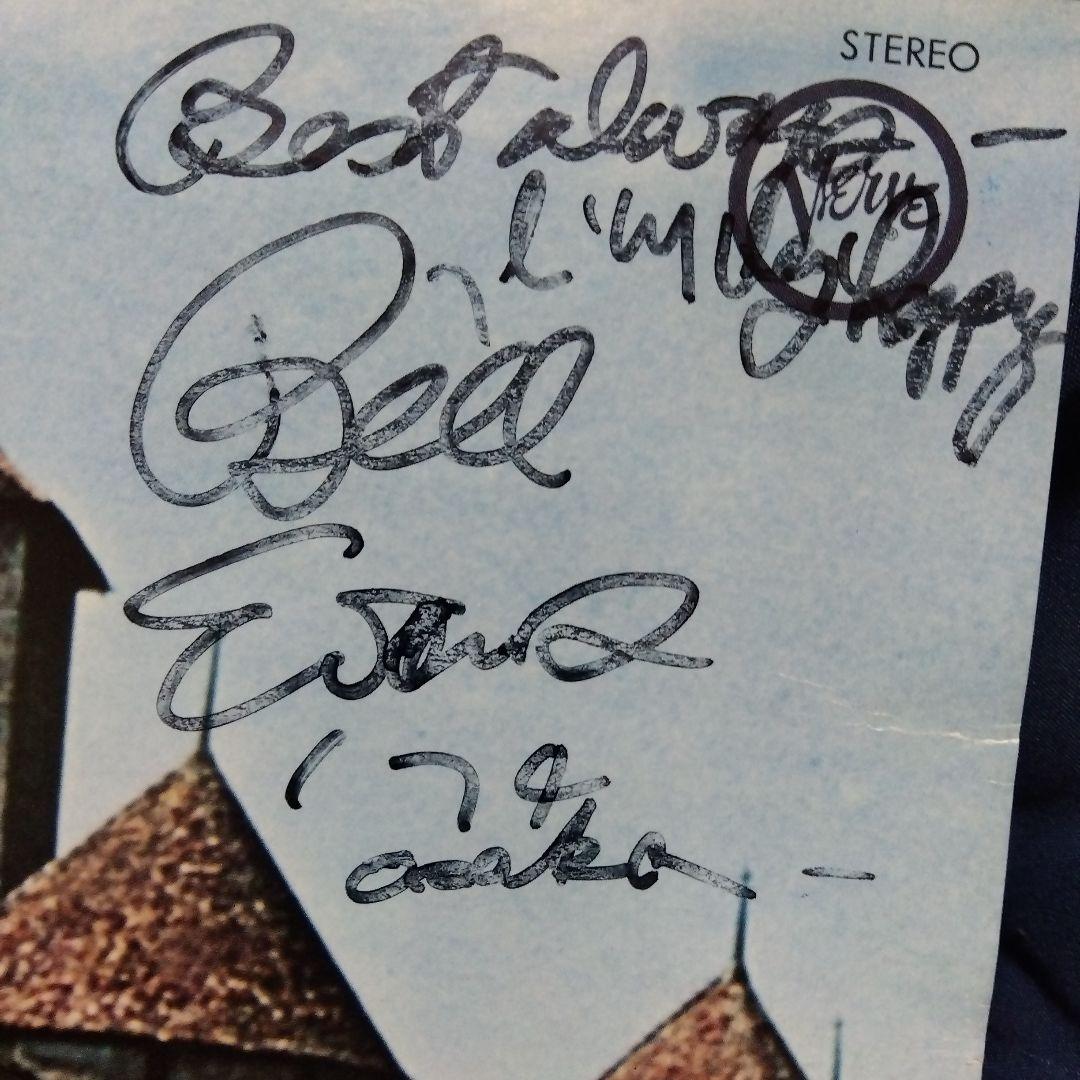 STEREO
Best always –
Verve
I'm very happy
Bill
Evans
'78
osaka –